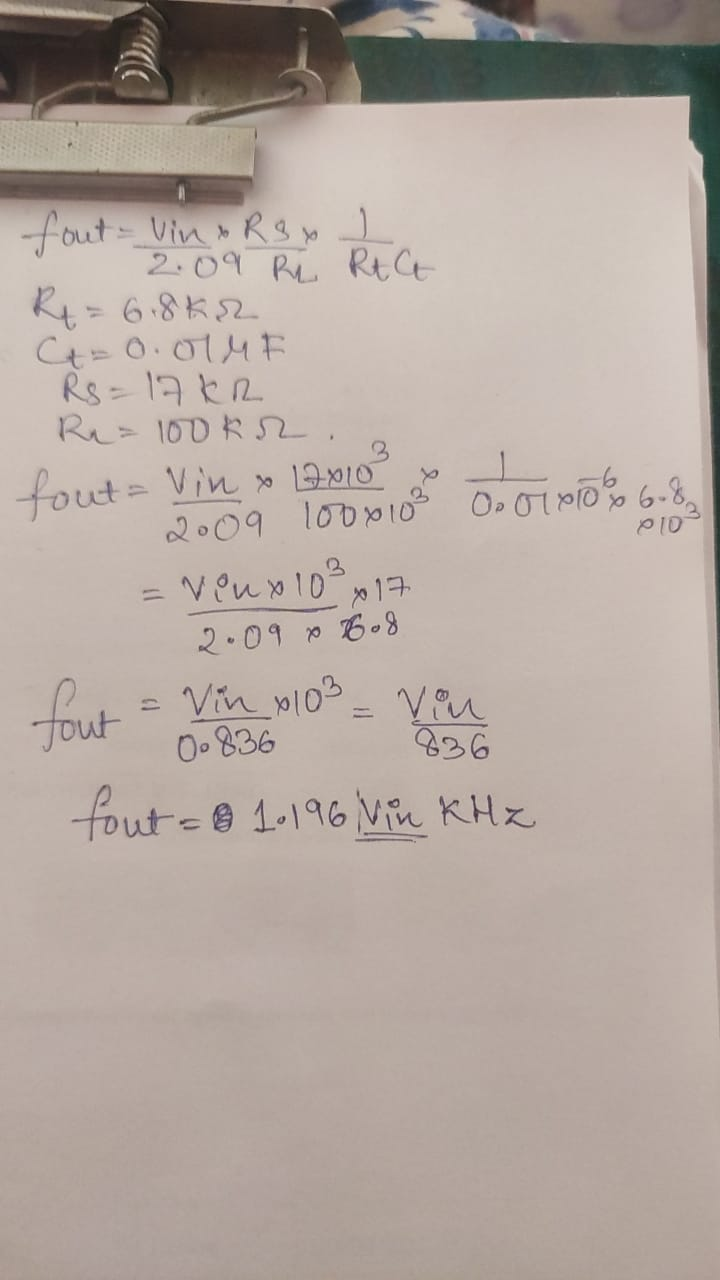 fout = Vin/2.09 × RS/RL × 1/RtCt
Rt = 6.8KΩ
Ct = 0.01μF
RS = 17 KΩ
RL = 100 KΩ.
fout = Vin/2.09 × 17×10³/100×10³ × 1/0.01×10⁻⁶×6.8×10³
= Vin×10³×17/2.09 × 6.8
fout = Vin×10³/0.836 = Vin/836
fout = 1.196 Vin KHz